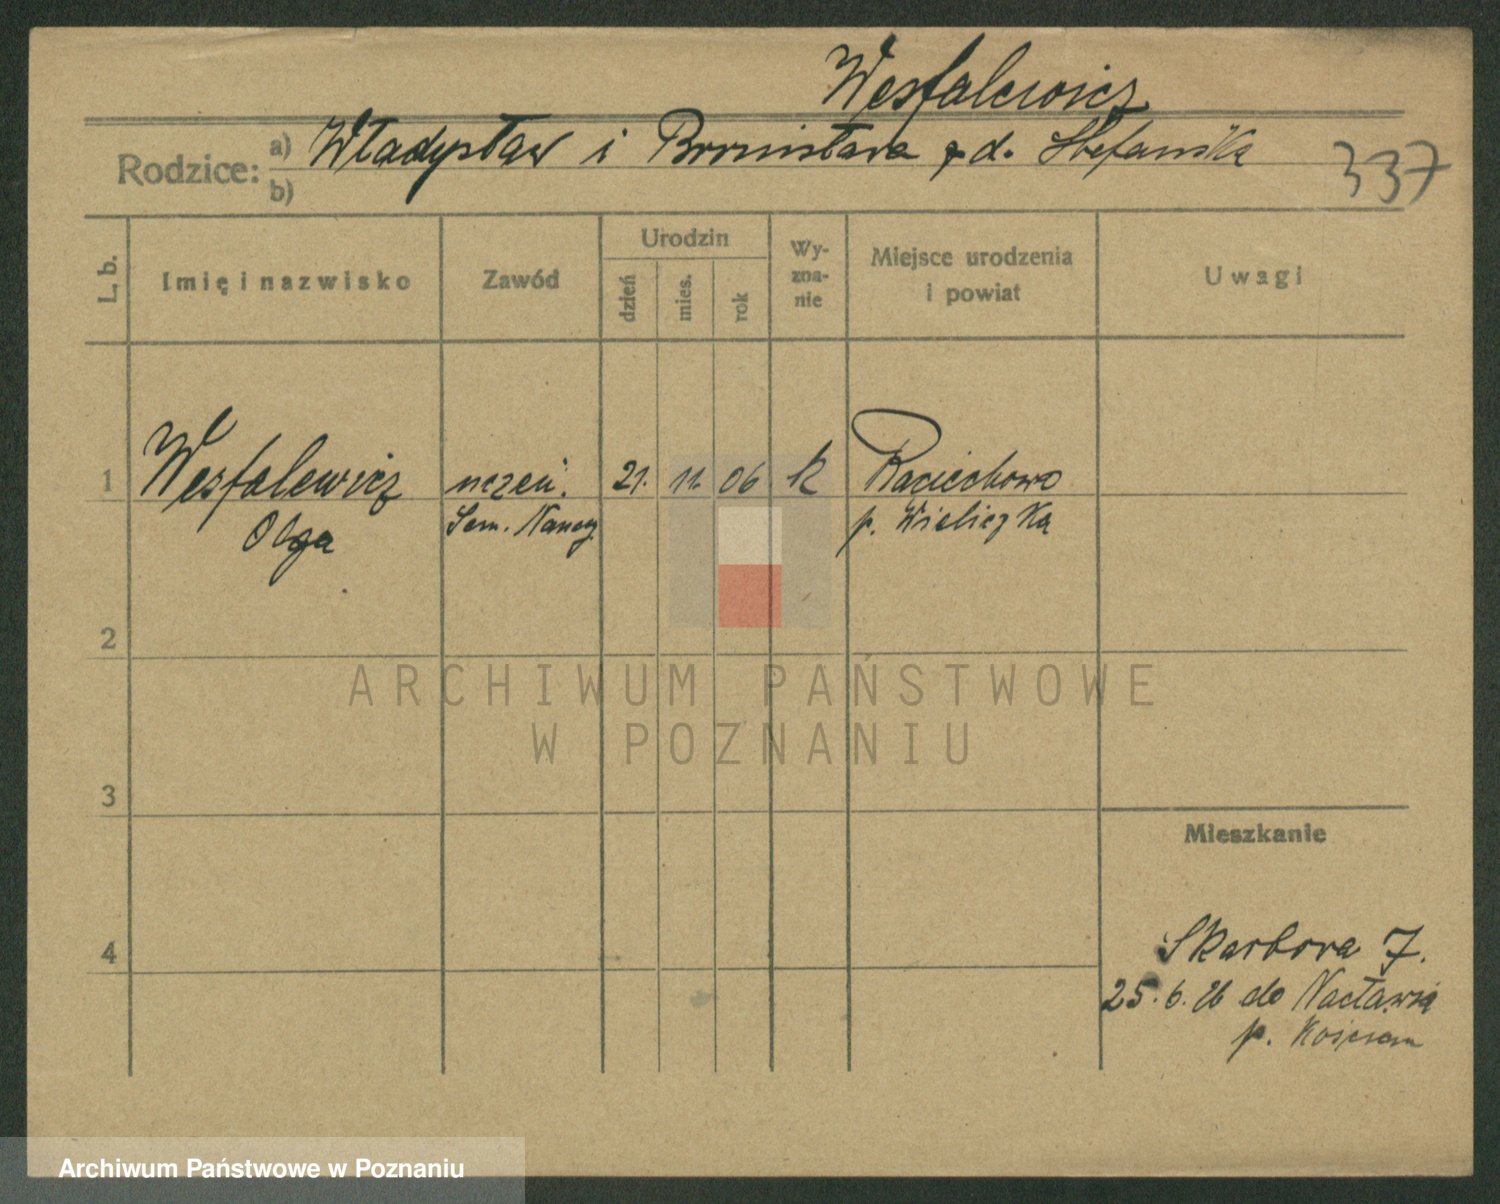 Wesfalewicz
Rodzice: a) Władysław i Bronisława z d. Stefańska
b)
337
L. b.
Imię i nazwisko
Zawód
Urodzin
dzień
mies.
rok
Wy-
zna-
nie
Miejsce urodzenia
i powiat
Uwagi
1 Wesfalewicz uczeń. 21. 11. 06 k Raciechowo
Olga Sem. Naucz. p. Wieliczka
2
ARCHIWUM PAŃSTWOWE
W POZNANIU
3
Mieszkanie
4
Skarbova 7.
25.6.26 do Nacławia
p. Kościan
Archiwum Państwowe w Poznaniu